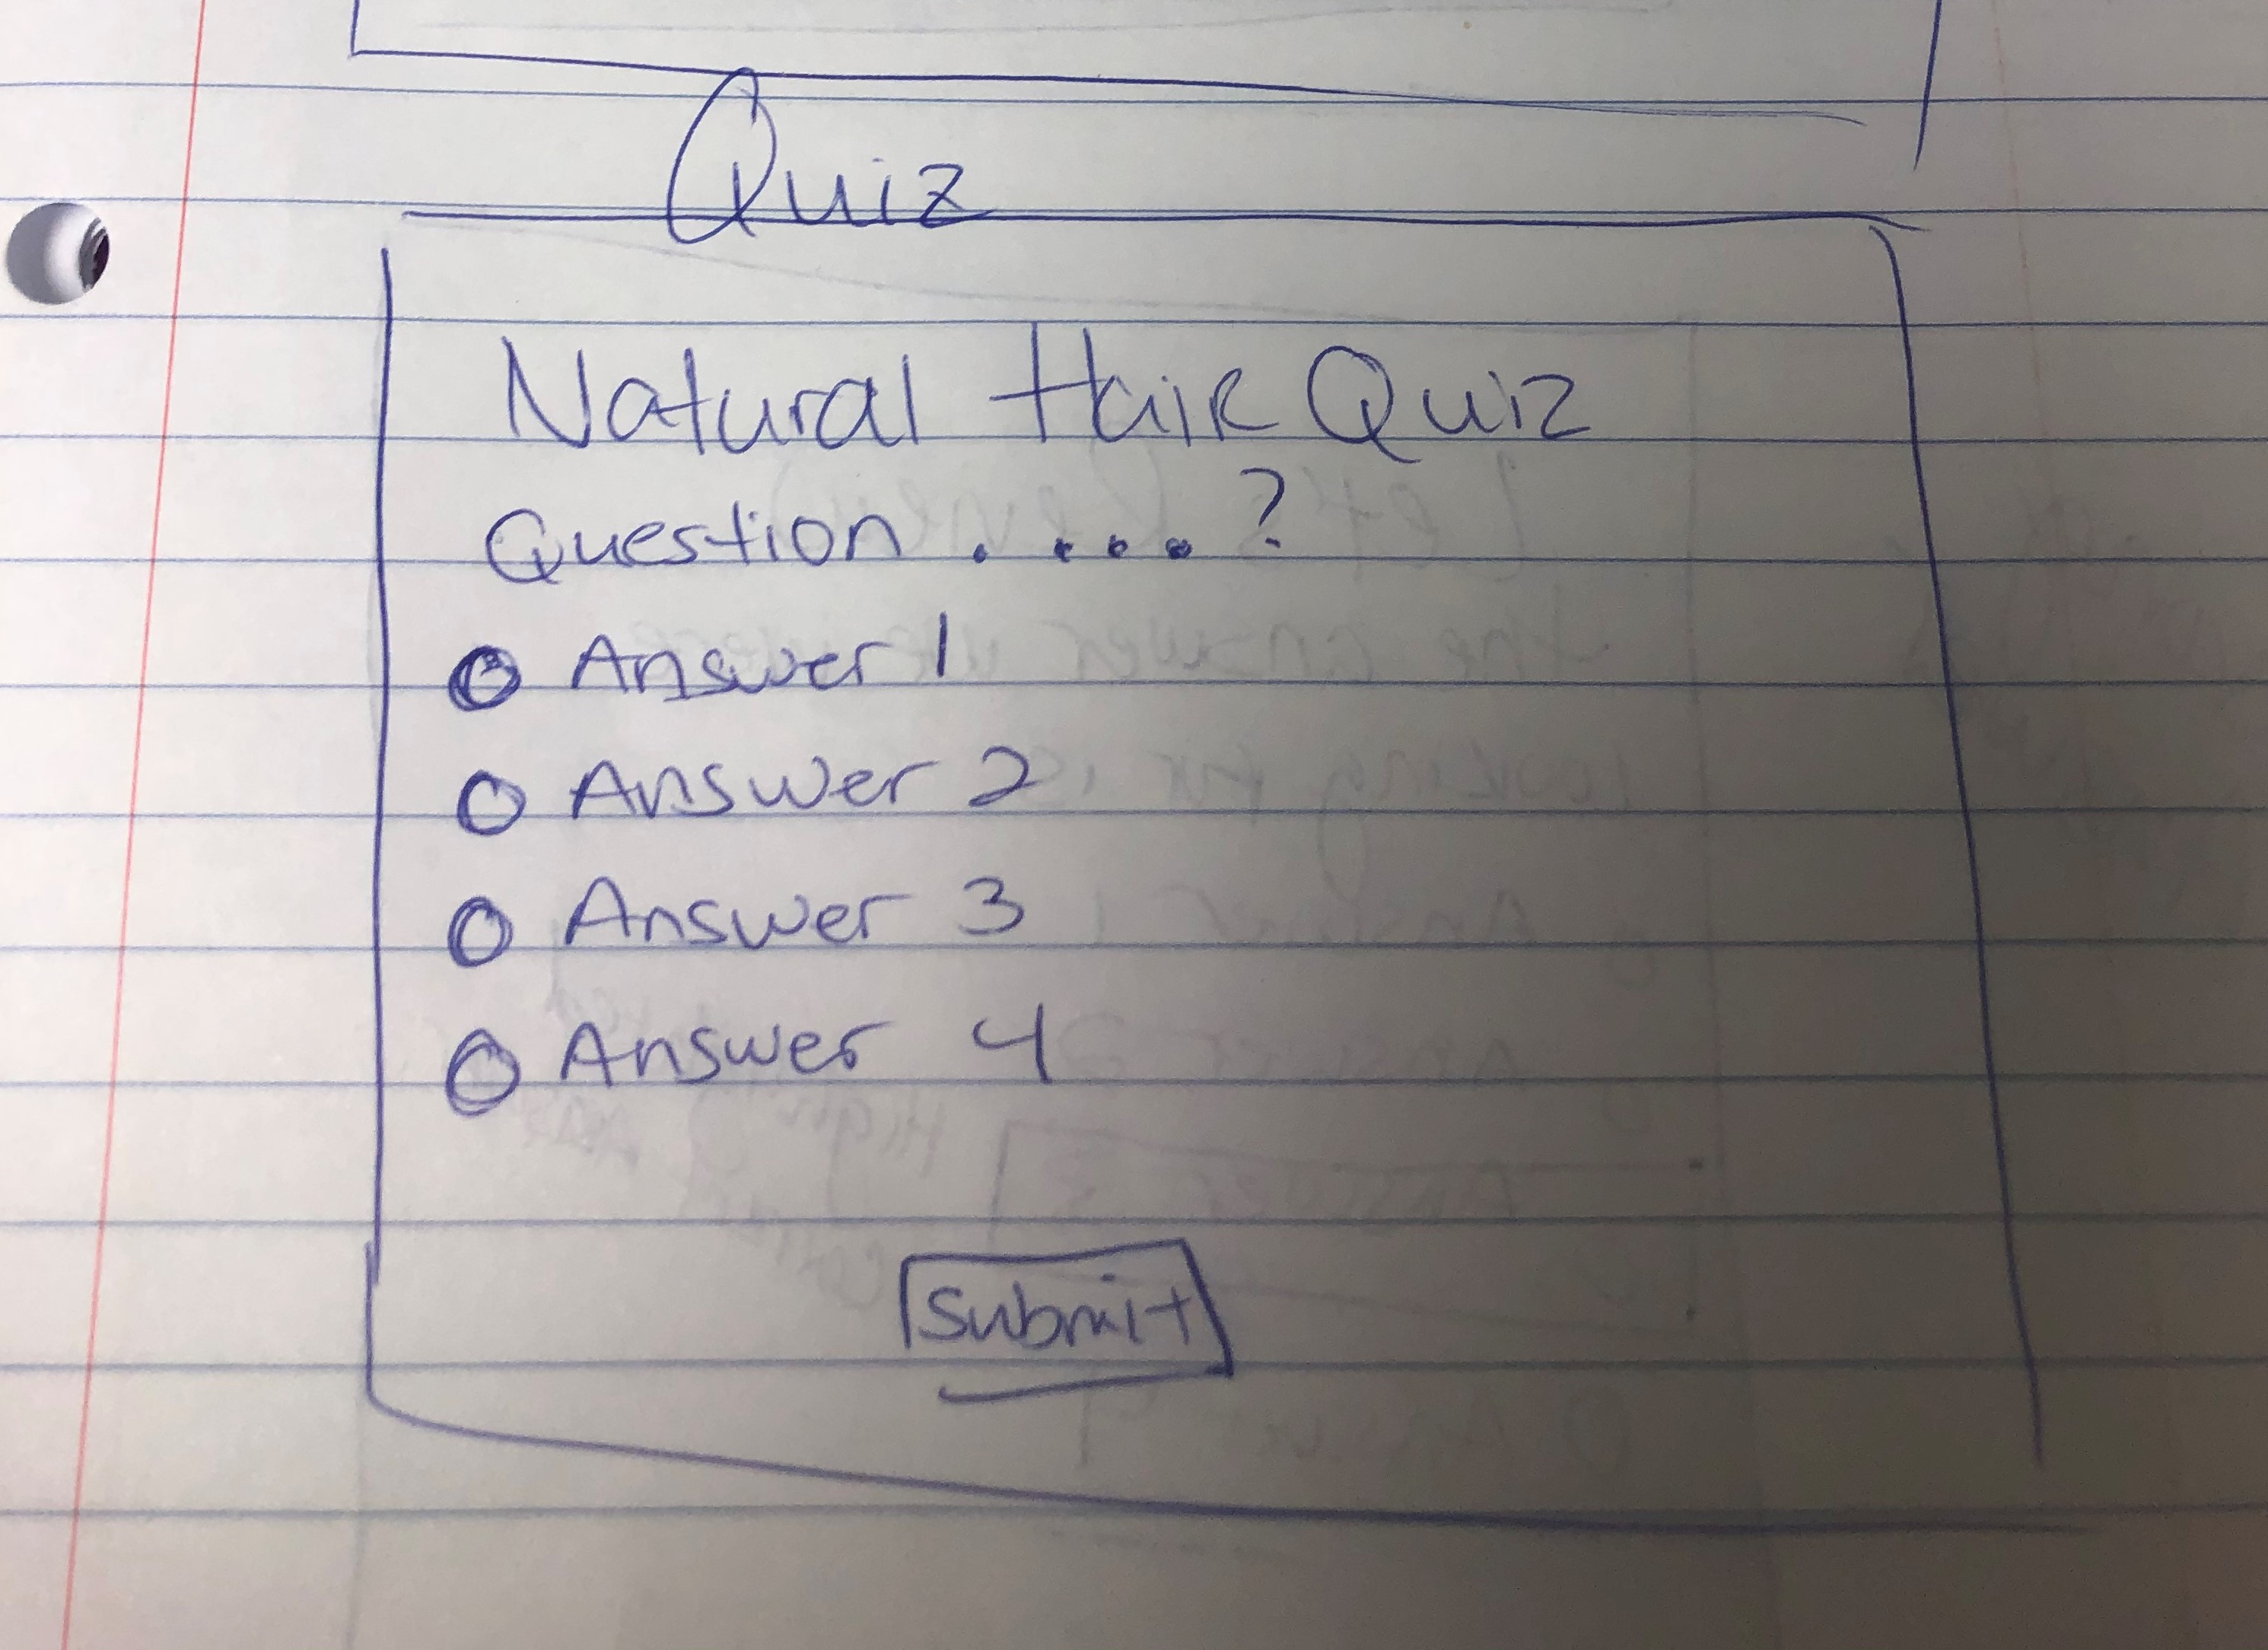 Quiz
Natural Hair Quiz
Question . . . . ?
Answer 1
Answer 2
Answer 3
Answer 4
Submit